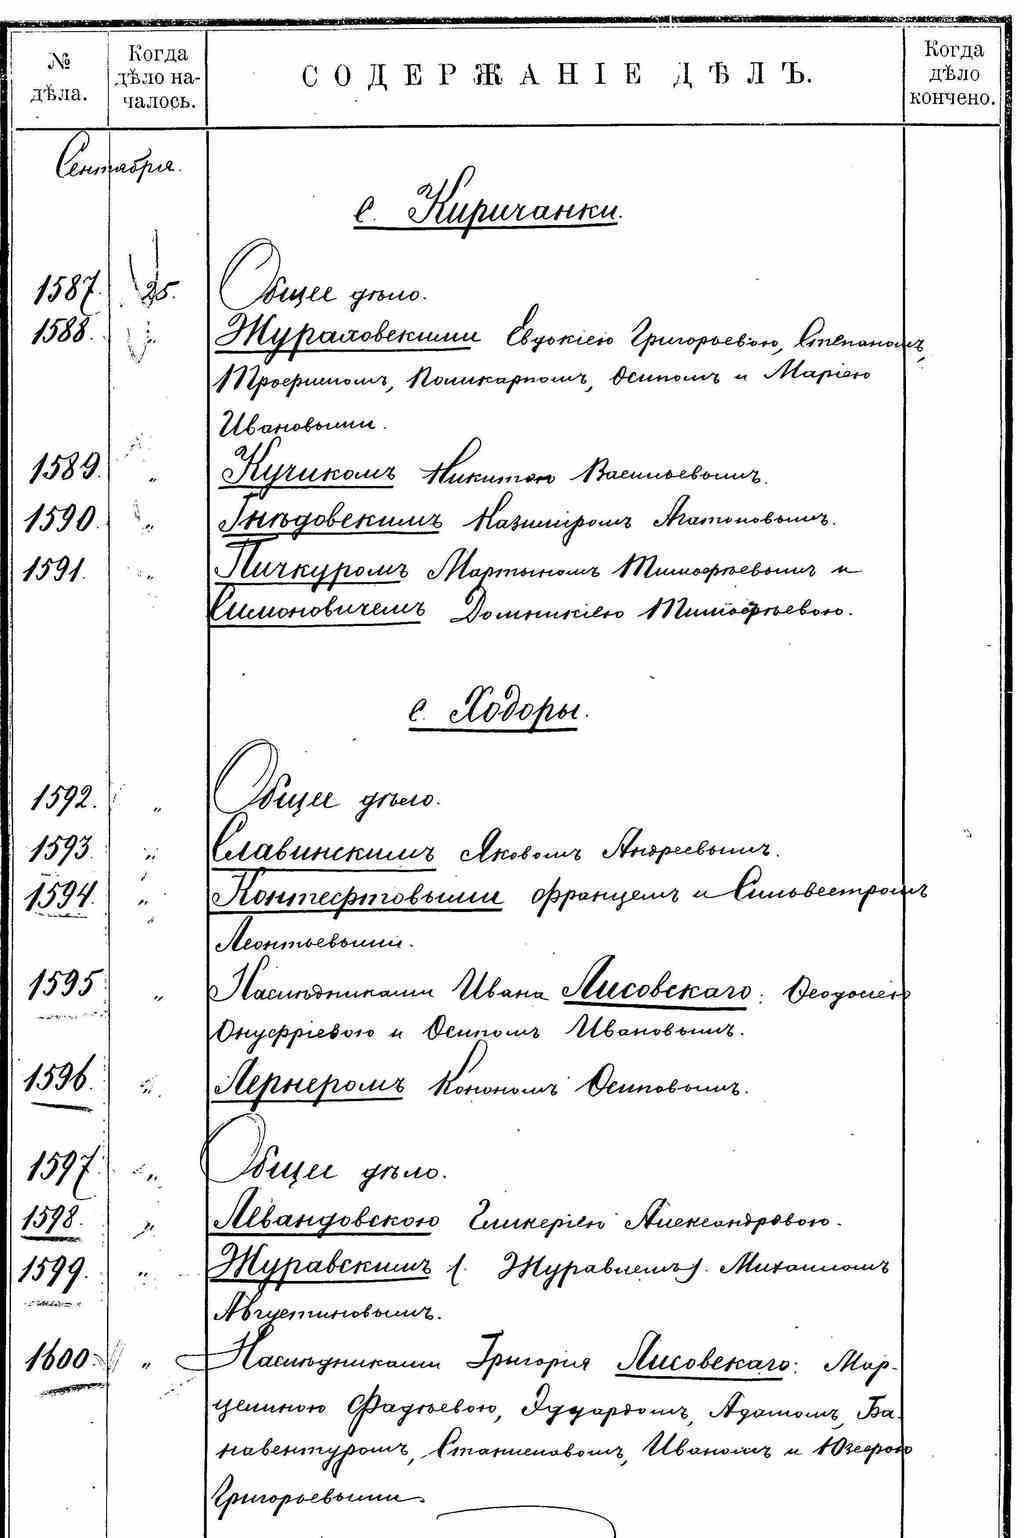 № дѣла. Когда дѣло на-чалось. СОДЕРЖАНІЕ ДѢЛЪ. Когда дѣло кончено.
Сентября.
с. Киричанки.
1587. 25. Общее дѣло.
1588. „ Жураховскими Евдокіею Григорьевою, Степаномъ,
Трофимомъ, Поликарпомъ, Осипомъ и Маріею
Ивановыми.
1589. „ Кучикомъ Никитою Васильевымъ.
1590. „ Гнѣдовскимъ Казиміромъ Агатоновымъ.
1591. „ Пичкуромъ Мартыномъ Тимофѣевымъ и
Симоновичемъ Домникіею Тимофѣевою.
с. Ходоры.
1592. „ Общее дѣло.
1593. „ Славинскимъ Яковомъ Андреевымъ.
1594. „ Контефтовыми Францемъ и Сильвестромъ
Леонтьевыми.
1595 „ Наслѣдниками Ивана Лисовскаго: Ѳеодосіею
Онуфріевою и Осипомъ Ивановымъ.
1596. „ Лернеромъ Конономъ Осиповымъ.
1597. „ Общее дѣло.
1598. „ Левандовскою Гликеріею Александровою.
1599. „ Журавскимъ (Журавлемъ). Михаиломъ
Августиновымъ.
1600. „ Наслѣдниками Григорія Лисовскаго: Мар-
целиною Фадѣевою, Эдуардомъ, Адамомъ, Ба-
навентуромъ, Станиславомъ, Иваномъ и Юзефою
Григорьевыми.